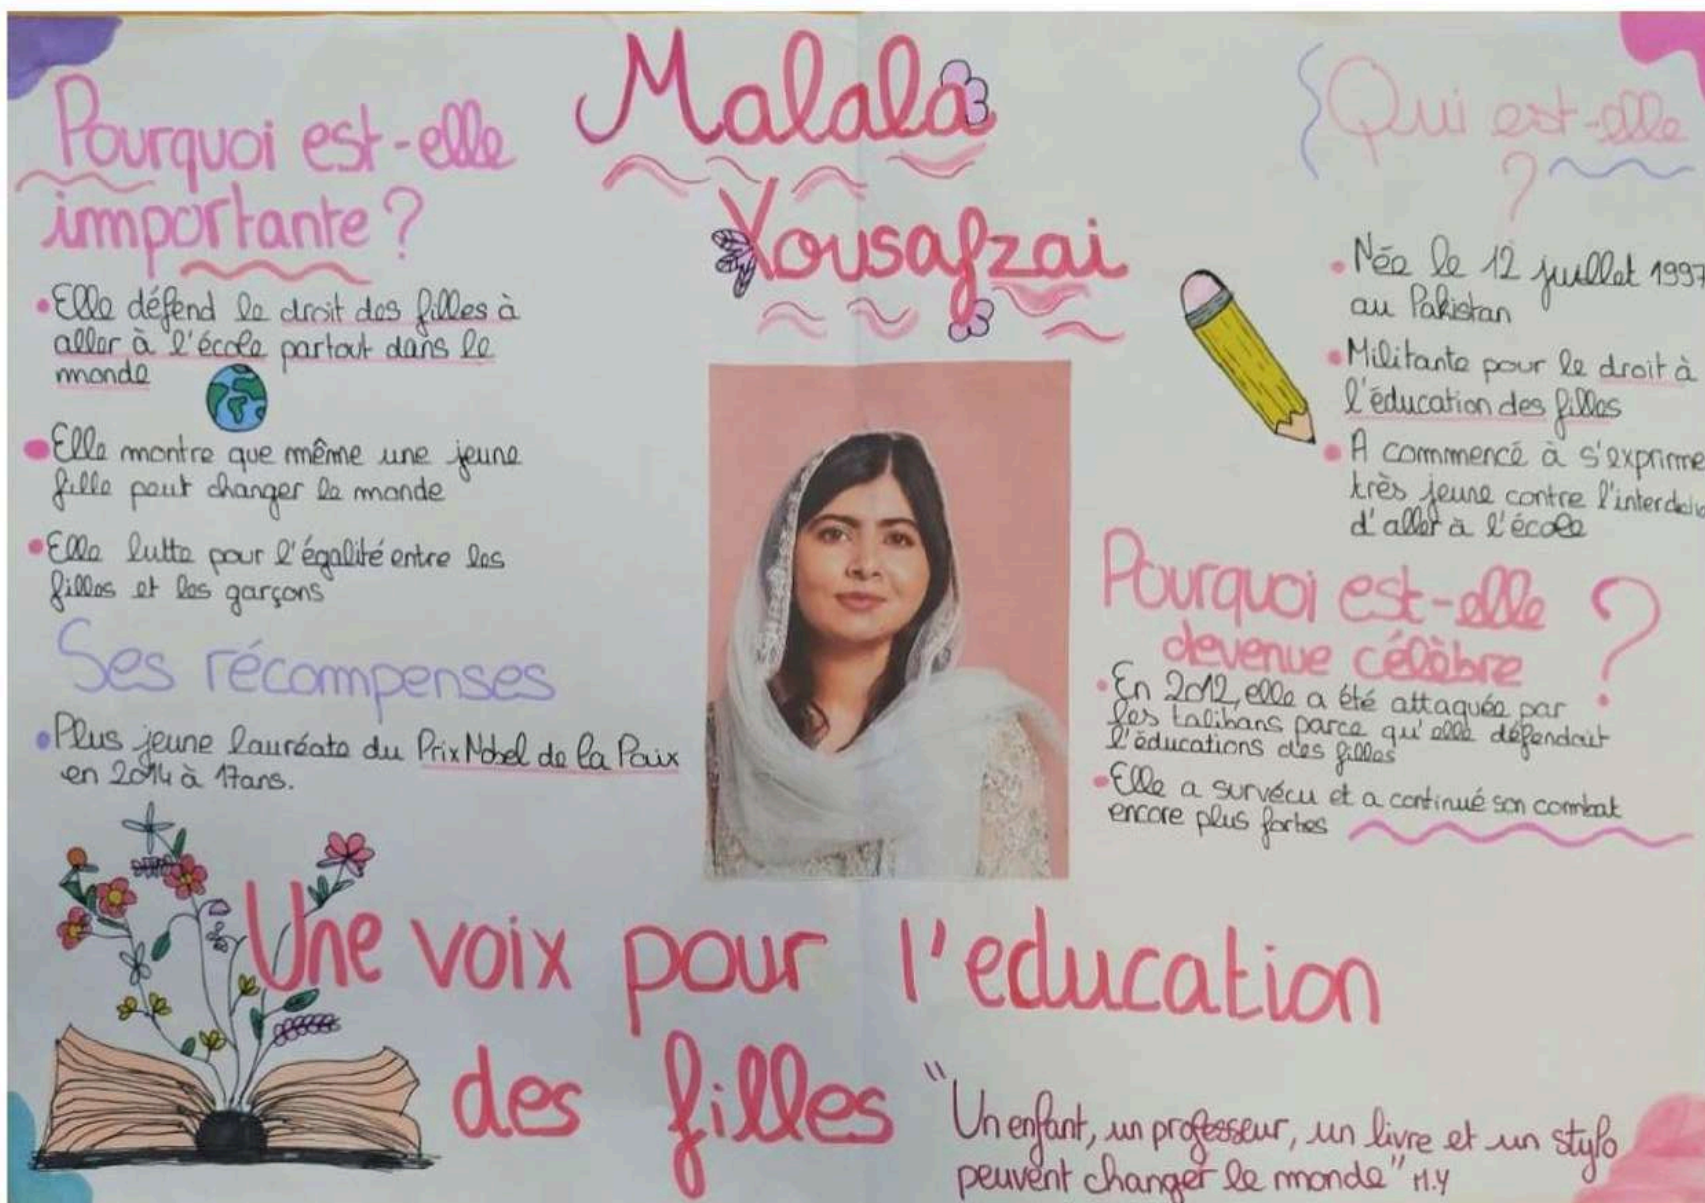 Malala
Yousafzai
Pourquoi est-elle
importante ?
• Elle défend le droit des filles à
aller à l'école partout dans le
monde
• Elle montre que même une jeune
fille peut changer le monde
• Elle lutte pour l'égalité entre les
filles et les garçons
Ses récompenses
• Plus jeune lauréate du Prix Nobel de la Paix
en 2014 à 17ans.
Qui est-elle
?
• Née le 12 juillet 1997
au Pakistan
• Militante pour le droit à
l'éducation des filles
• A commencé à s'exprime
très jeune contre l'interdictio
d'aller à l'école
Pourquoi est-elle
devenue célèbre ?
• En 2012, elle a été attaquée par
les talibans parce qu'elle défendait
l'éducations des filles
• Elle a survécu et a continué son combat
encore plus fortes
Une voix pour l'education
des filles
"Un enfant, un professeur, un livre et un stylo
peuvent changer le monde" M.Y